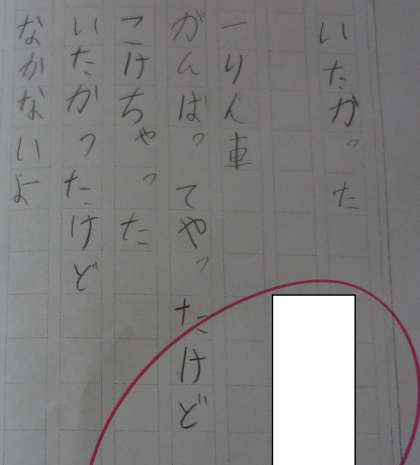 いたかった
一りん車
がんばってやったけど
こけちゃった
いたかったけど
なかないよ